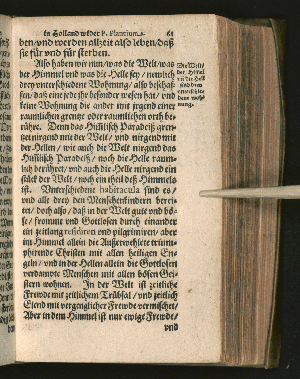 in Holland wider P. Plantium. 61
ben/und werden allzeit also leben/daß
sie für und für sterben.
Also haben wir nun/was die Welt/was
der Himmel und was die Helle sey / nemlich
drey unterschiedene Wohnung / also beschaf-
fen/daß eine jede ihr besonder wesen hat / und
keine Wohnung die ander mit jrgend einer
raumlichen grentze oder raumlichen orth be-
rühre. Denn das Himlisch Paradeiß gren-
tzet nirgend mit der Welt / und nirgend mit
der Hellen / wie auch die Welt nirgend das
Himlisch Paradeiß / noch die Helle raum-
lich berühret / und auch die Helle nirgend ein
stück der Welt / noch ein theil deß Himmels
ist. Unterschiedene habitacula sind es /
und alle drey den Menschenkindern berei-
tet / doch also / daß in der Welt gute und bö-
se / fromme und Gottlosen durch einander
ein zeitlang residiren und pilgrimiren / aber
im Himmel allein die Außerwehlete trium-
phirende Christen mit allen heiligen En-
geln / und in der Hellen allein die Gottlosen
verdampte Menschen mit allen bösen Gei-
stern wohnen. In der Welt ist zeitliche
Frewde mit zeitlichem Trübsal / und zeitlich
Elend mit vergenglicher Frewde vermischet /
Aber in dem Himmel ist nur ewige Frewde /
und
Die Welt /
der Himel
und die Hell
sind drey
unterschie-
dene woh-
nung.